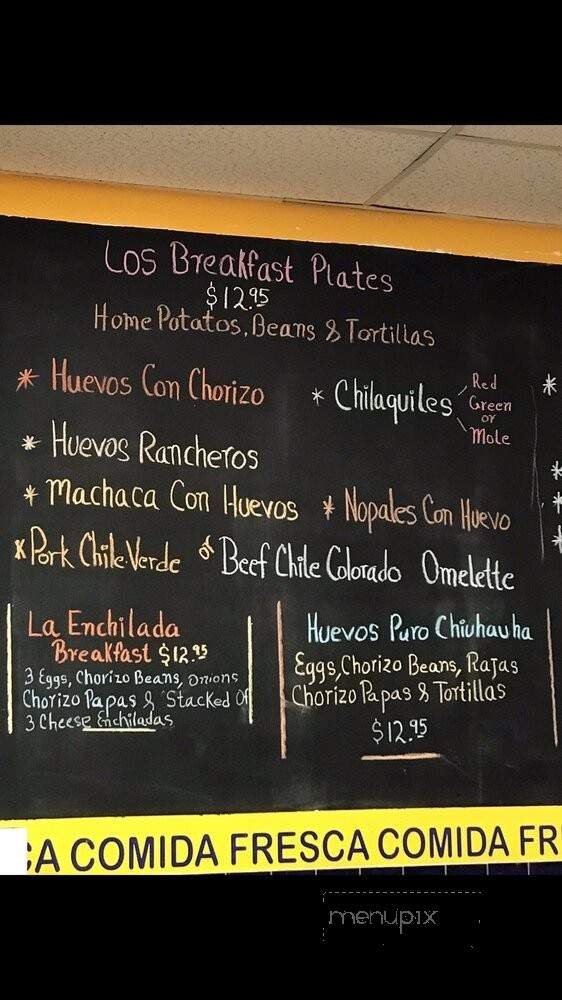 Los Breakfast Plates
$12.95
Home Potatos, Beans & Tortillas
* Huevos Con Chorizo
* Chilaquiles Red
Green
or
Mole
* Huevos Rancheros
* Machaca Con Huevos * Nopales Con Huevo
* Pork Chile Verde or Beef Chile Colorado Omelette
La Enchilada
Breakfast $12.95
3 Eggs, Chorizo Beans, Onions
Chorizo Papas & Stacked Of
3 Cheese Enchiladas
Huevos Puro Chiuhauha
Eggs, Chorizo Beans, Rajas
Chorizo Papas & Tortillas
$12.95
CA COMIDA FRESCA COMIDA FR
menupix